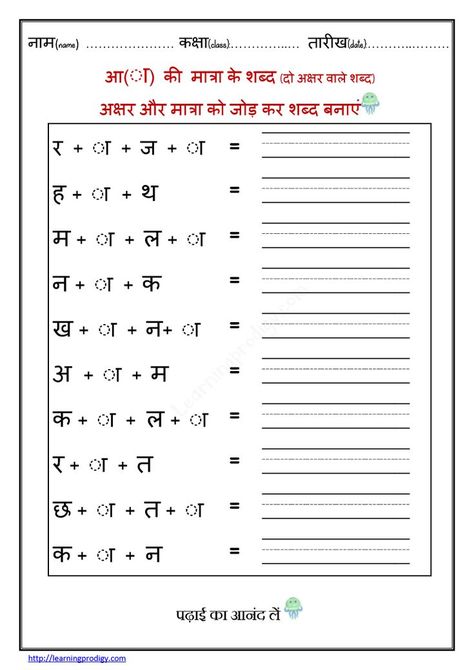 नाम(name) ..................... कक्षा(class)................ तारीख(date)......................
आ(ा) की मात्रा के शब्द (दो अक्षर वाले शब्द)
अक्षर और मात्रा को जोड़ कर शब्द बनाएं
र + ा + ज + ा =
ह + ा + थ =
म + ा + ल + ा =
न + ा + क =
ख + ा + न+ ा =
अ + ा + म =
क + ा + ल + ा =
र + ा + त =
छ + ा + त + ा =
क + ा + न =
Learningprodigy.com
पढ़ाई का आनंद लें
http://learningprodigy.com